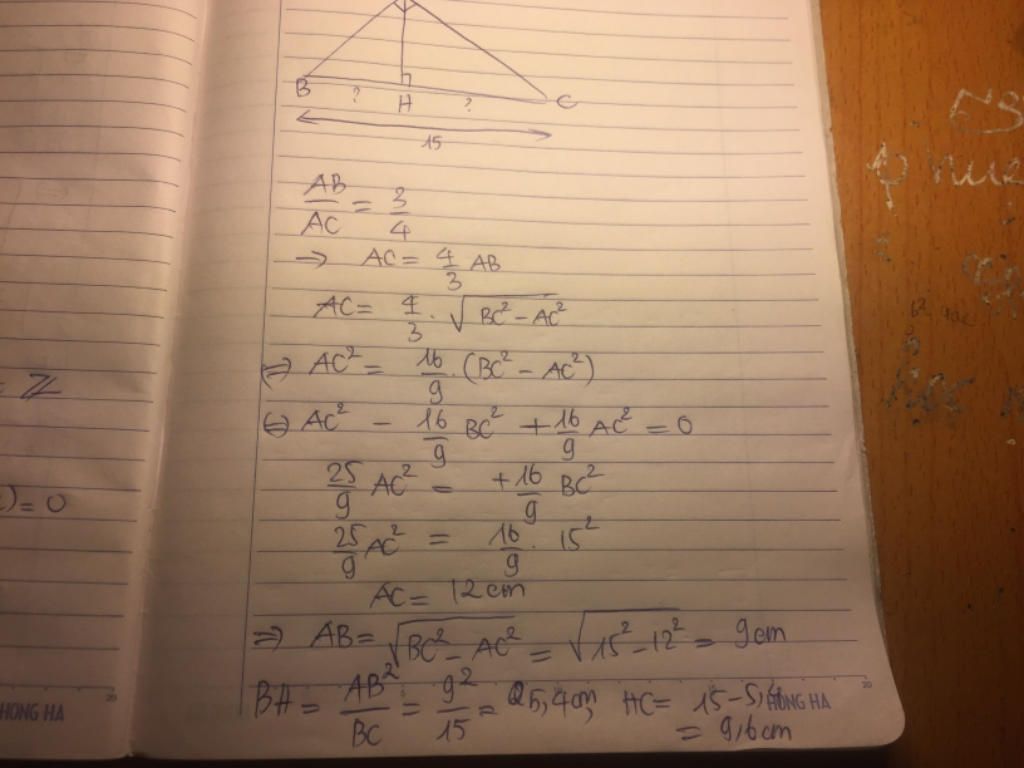 B ? H ? C
15
AB/AC = 3/4
→ AC = 4/3 AB
AC = 4/3 . √(BC² - AC²)
⇒ AC² = 16/9 . (BC² - AC²)
⇔ AC² - 16/9 BC² + 16/9 AC² = 0
25/9 AC² = +16/9 BC²
25/9 AC² = 16/9 . 15²
AC = 12cm
⇒ AB = √(BC² - AC²) = √(15² - 12²) = 9cm
BH = AB²/BC = 9²/15 = 5,4cm, HC = 15 - 5,4
= 9,6cm
= Z
) = 0
HONG HA
HONG HA
20
20